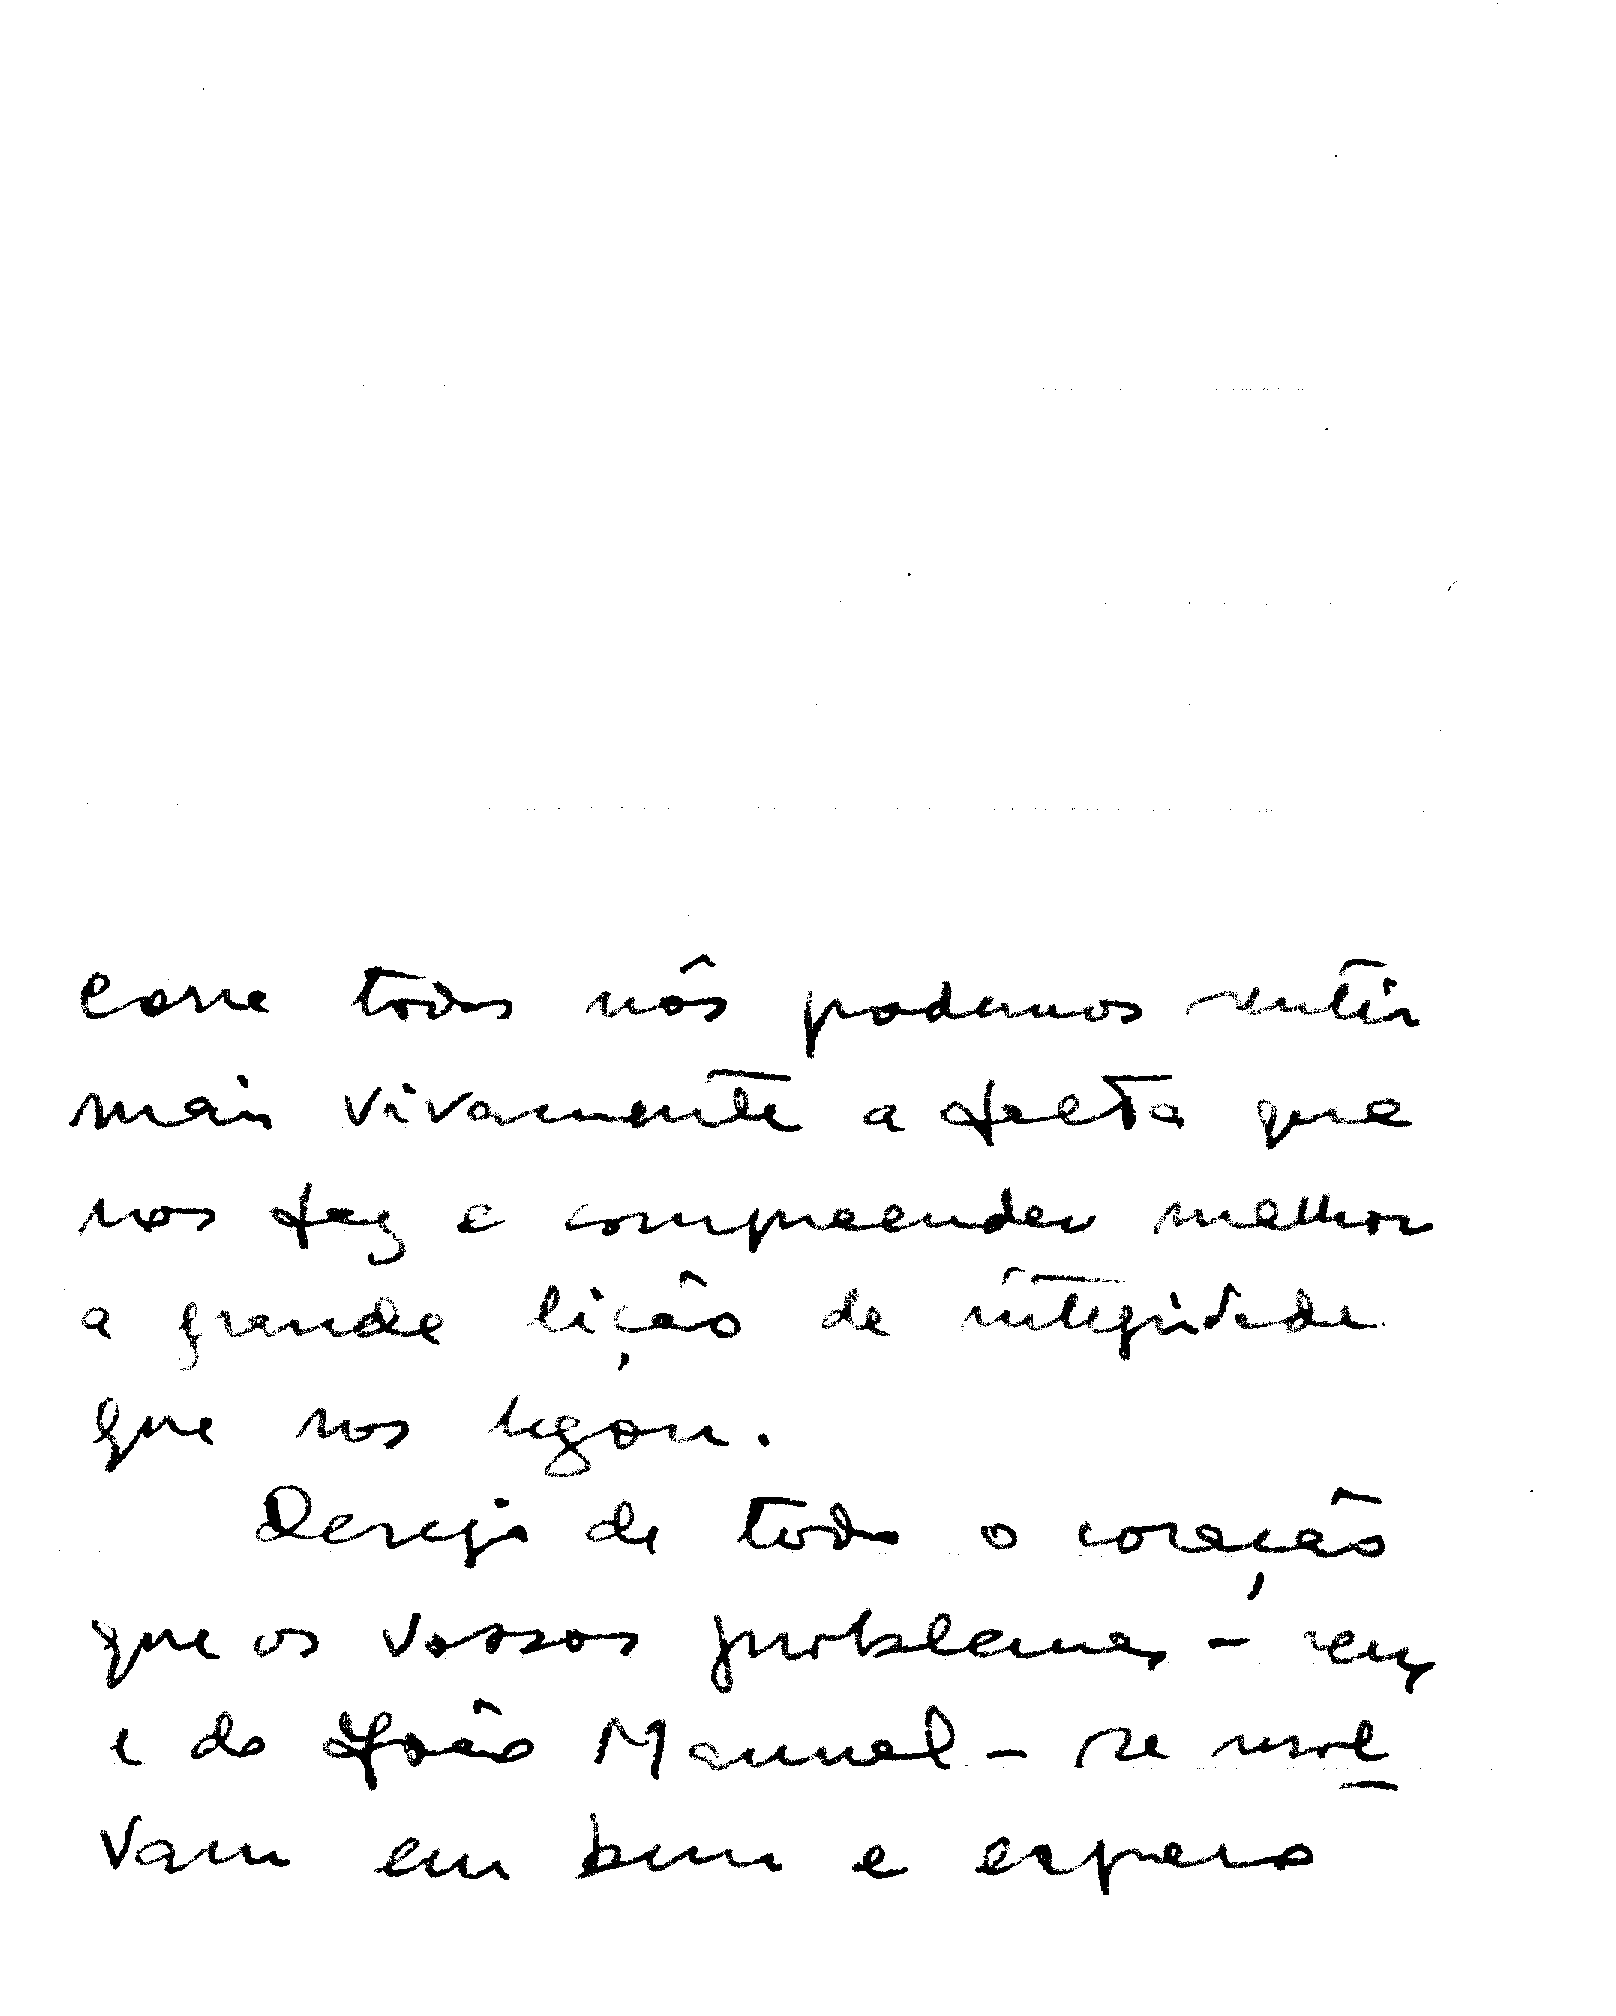 todos nós podemos sentir
mais vivamente a falta que
nos faz e compreender melhor
a grande lição de integridade
que nos legou.
Desejo de todo o coração
que os vossos problemas - seus
e do João Manuel - se resol-
vam em bem e espero